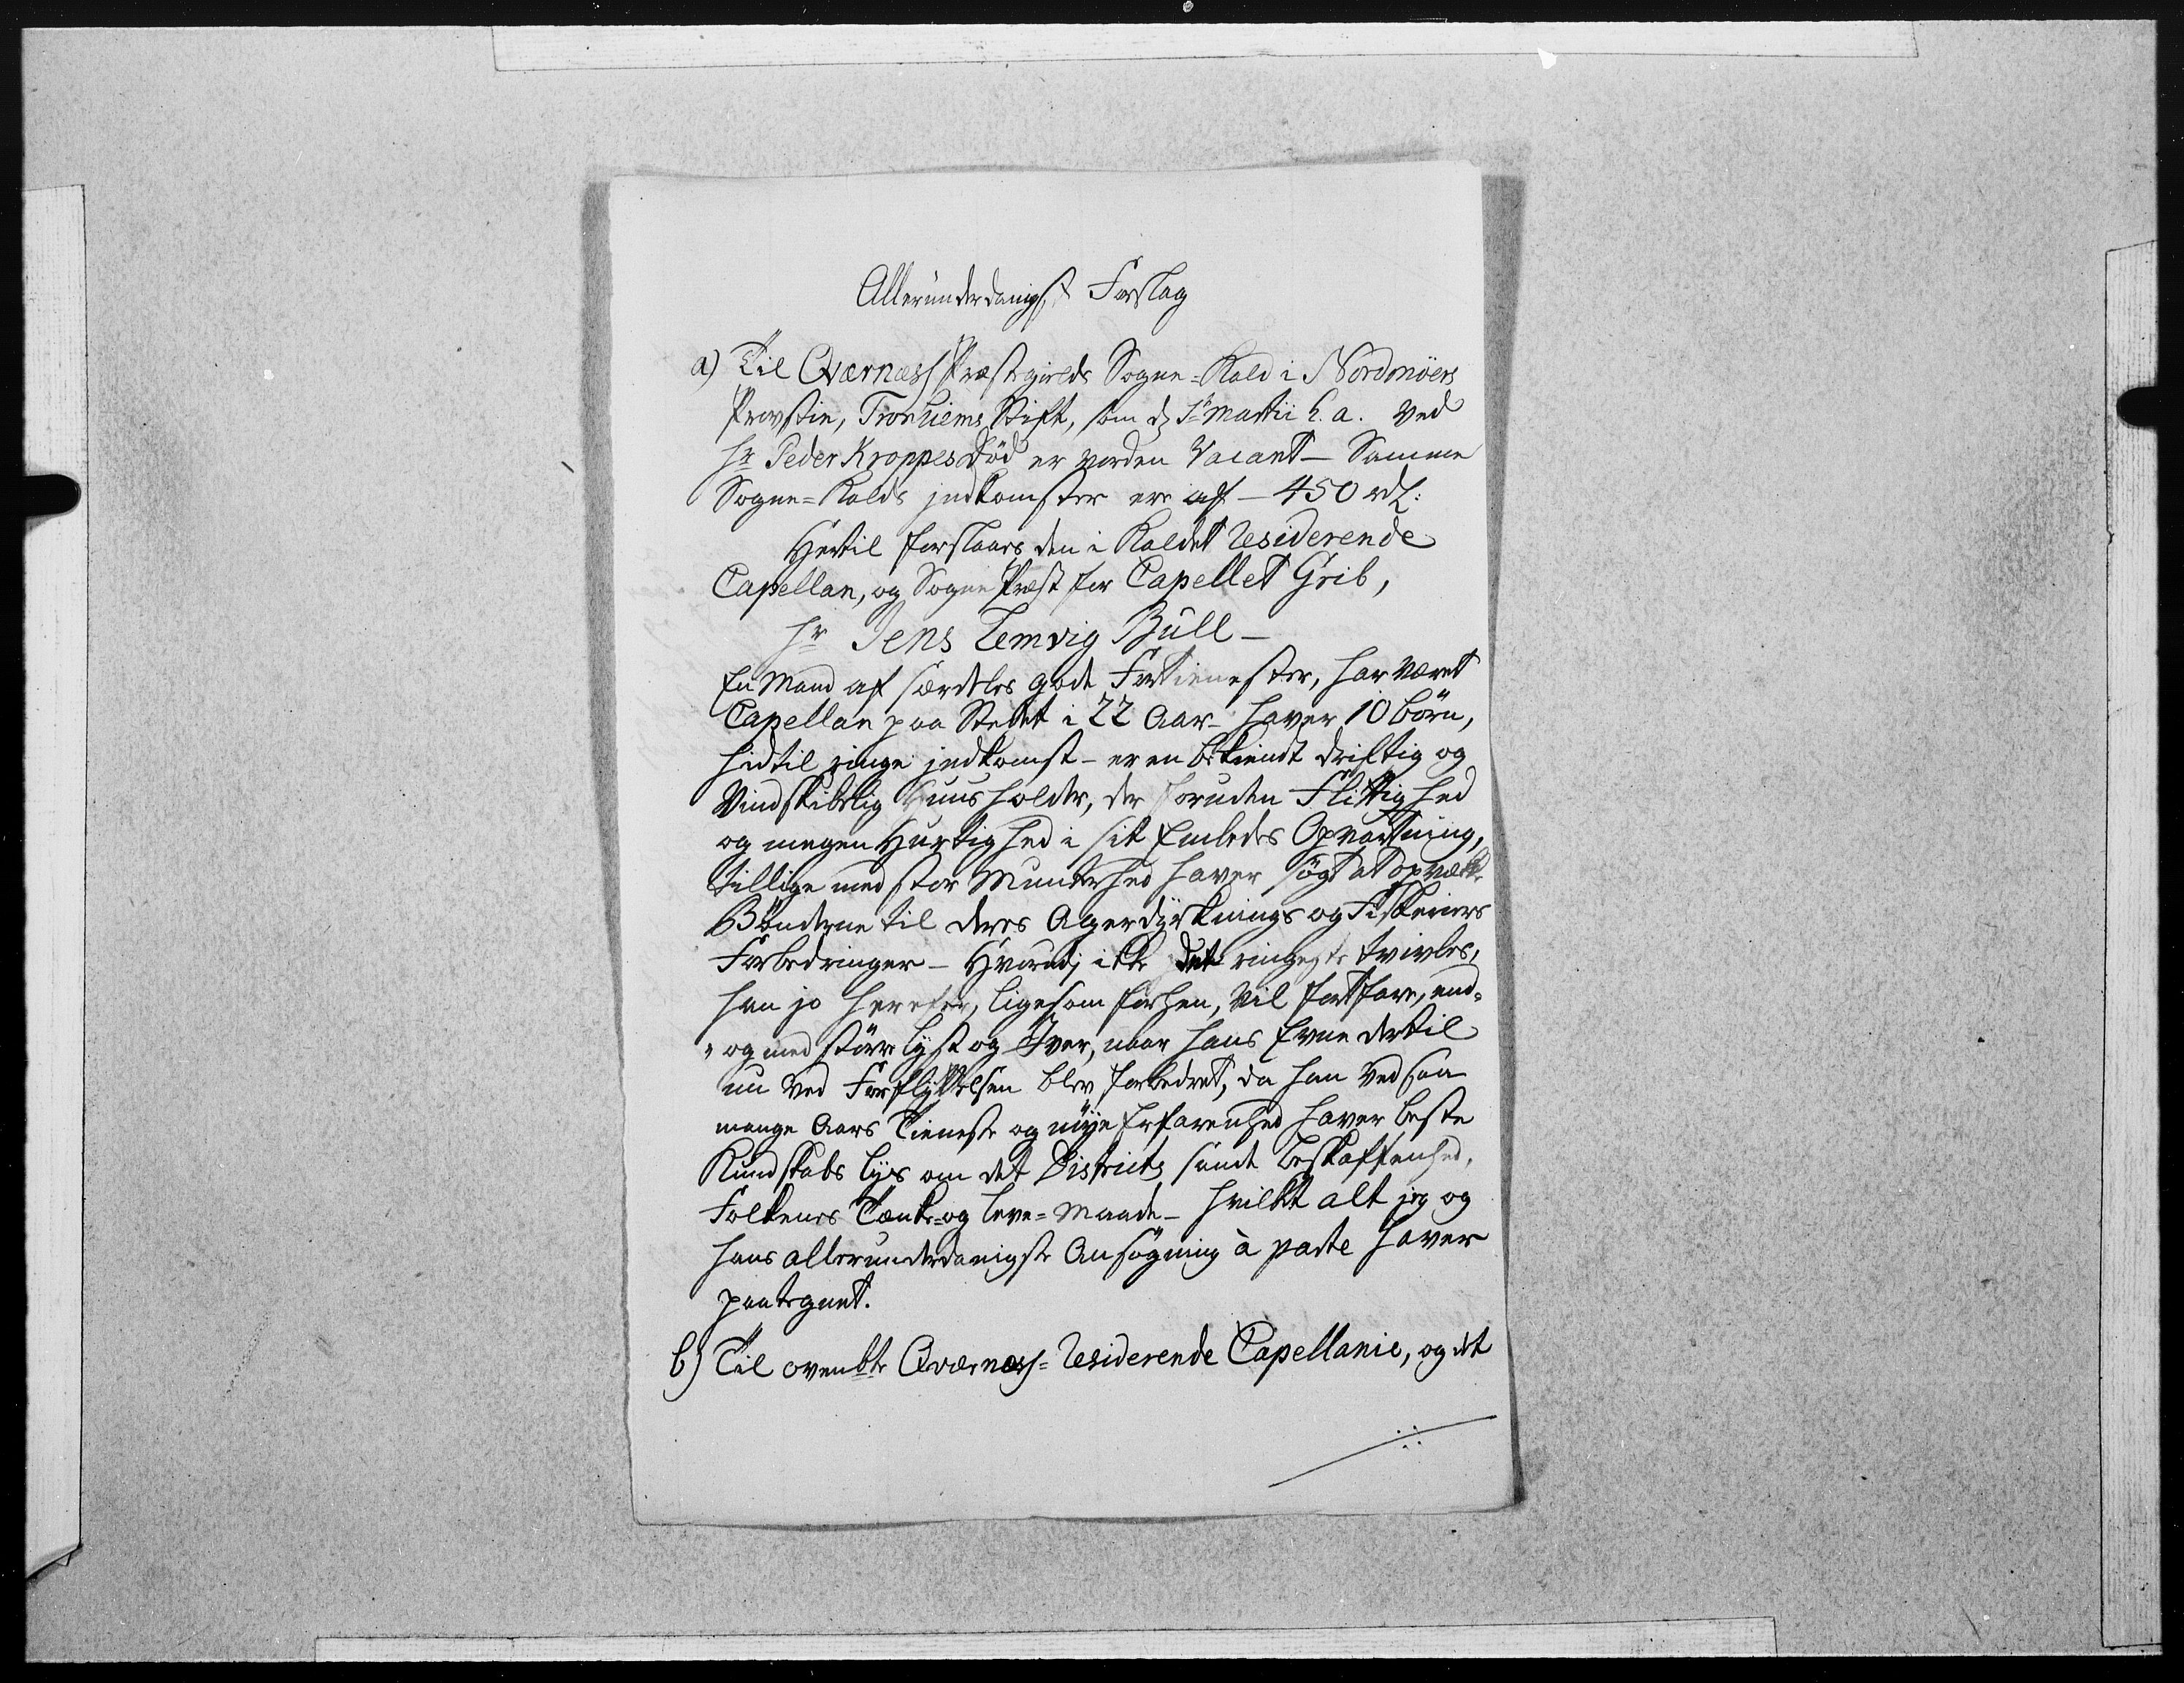 Alleründerdanigst Forslag
a) Til Qværnæss Præstegields Sogne-Kald i Nordmöers
Provstie, Tronhiems Stift, som d. Martii h. a. ved
Hr Peder Kroppes Död er vorden Vacant - Samme
Sogne-Kalds jndkomster ere af - 450 rdl:
Hertil forslaaes den i Kaldet Residerende
Capellan, og SognePræst for Capellet Grib,
Hr Jens Lemvig Bull -
En Mand af særdeles gode Fortienester, har været
Capellan paa Stedet i 22 Aar - haver 10 börn,
hidtil ringe jndkomst - er en bekiendt driftig og
Vindskibelig Huusholder, der foruden Flittighed
og megen Hurtighed i sit Embedes Opvartning,
tillige med stor Munterhed haver sögt at opvække
Bönderne til deres Agerdyrknings og Fiskeriers
Forbedringer - Hvorudj ikke det ringeste tvivles,
han jo herefter, ligesom forhen, vil fortfare, end-
-og med större lyst og Iver, naar hans Evne dertil
nu ved Forflyttelsen blev forbedret, da han ved saa
mange Aars Tieneste og nöye Erfarenhed haver beste
Kundskabs lys om det Districts sande beskaffenhed,
Folkenes Tænke- og leve-Maade - hvilket alt jeg og
hans allerunderdanigste Ansögning à parte haver
paategnet.
b) Til ovenbte Qværnæss-Residerende Capellanie, og det